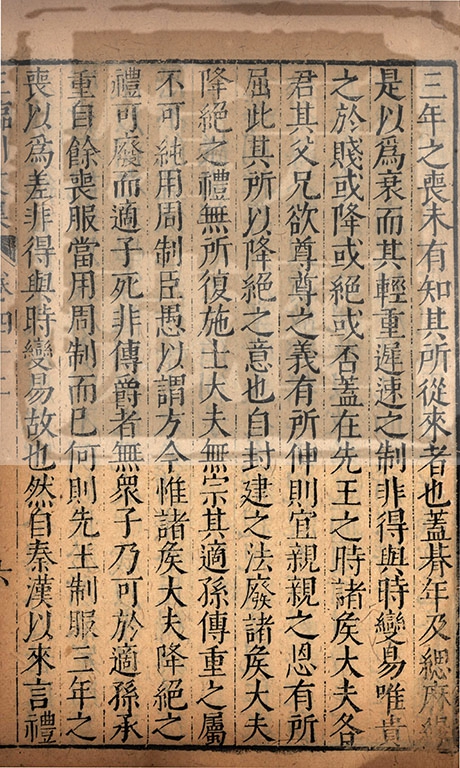 三年之喪未有知其所從來者也蓋朞年及緦麻緦
是以為衰而其輕重遲速之制非得與時變易唯貴
之於賤或降或絕或否蓋在先王之時諸矦大夫各
君其父兄欲尊尊之義有所伸則宜親親之恩有所
屈此其所以降絕之意也自封建之法廢諸矦大夫
降絕之禮無所復施士大夫無宗其適孫傳重之屬
不可純用周制臣愚以謂方今惟諸矦大夫降絕之
禮可廢而適子死非傳爵者無衆子乃可於適孫承
重自餘喪服當用周制而已何則先王制服三年之
喪以為差非得與時變易故也然自秦漢以來言禮